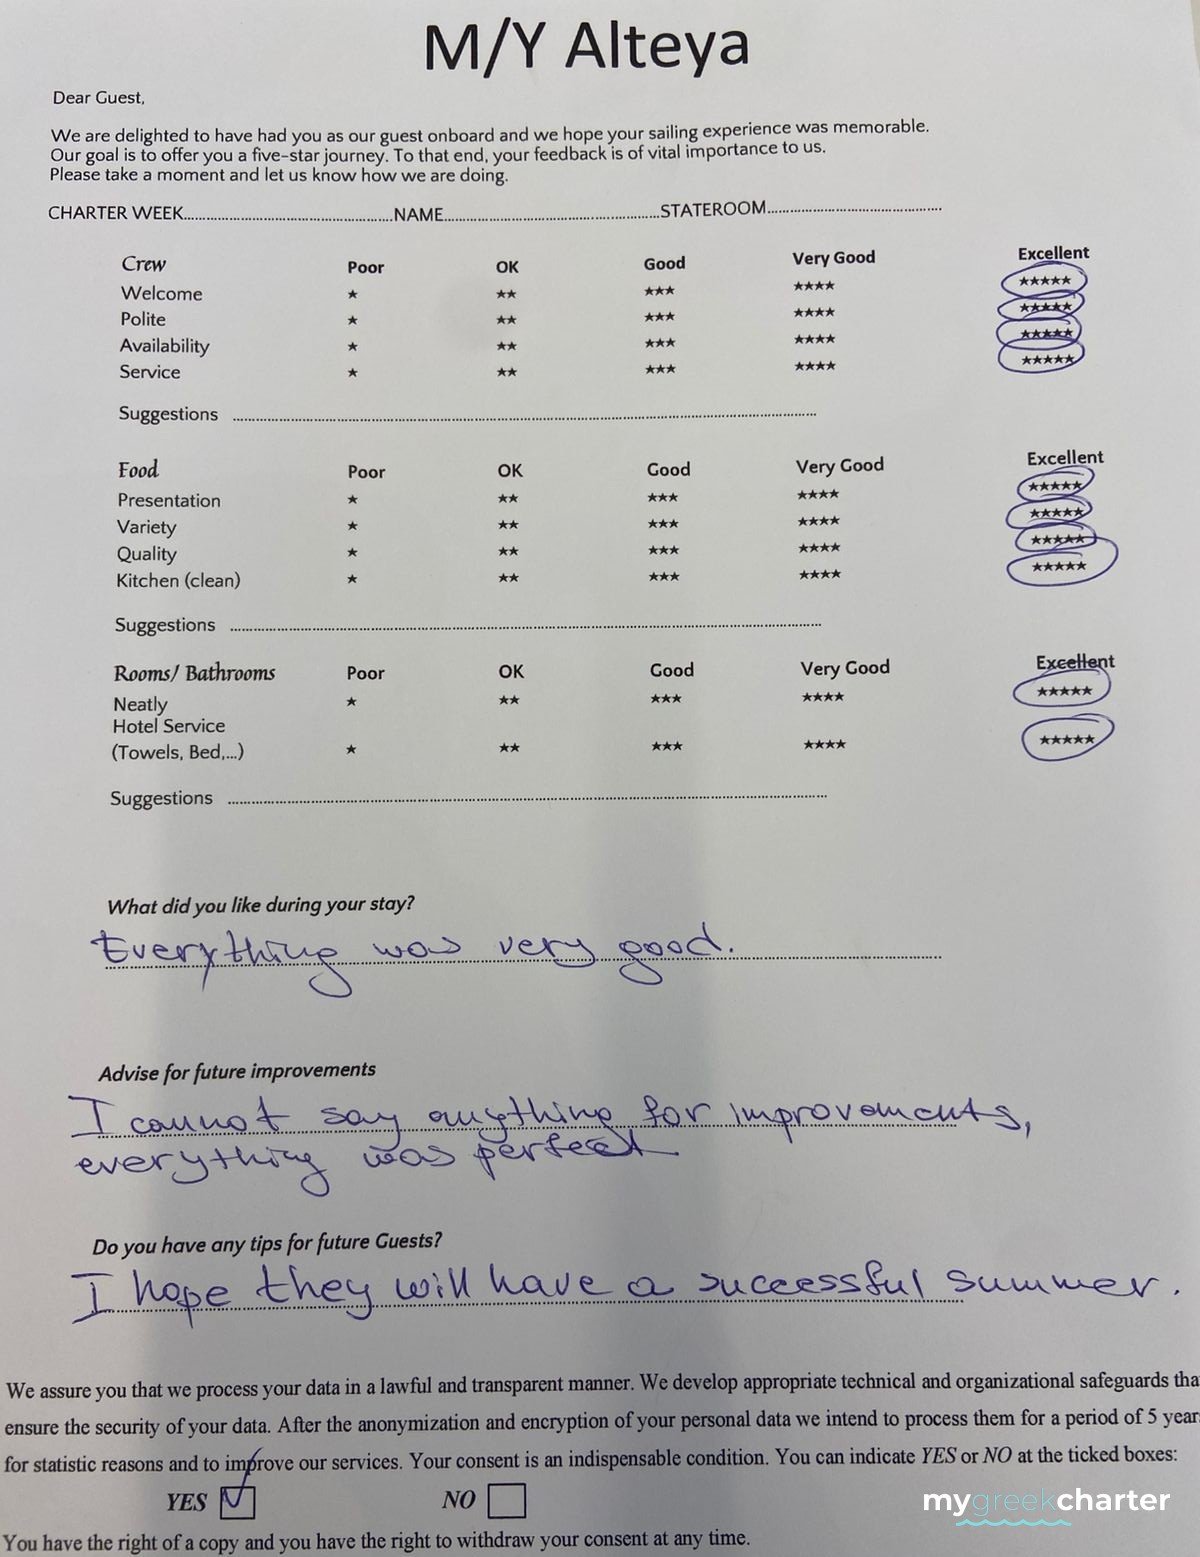 M/Y Alteya
Dear Guest,
We are delighted to have had you as our guest onboard and we hope your sailing experience was memorable.
Our goal is to offer you a five-star journey. To that end, your feedback is of vital importance to us.
Please take a moment and let us know how we are doing.
CHARTER WEEK..........NAME..........STATEROOM..........
Crew Poor OK Good Very Good Excellent
Welcome ★ ★★ ★★★ ★★★★ ★★★★★
Polite ★ ★★ ★★★ ★★★★ ★★★★★
Availability ★ ★★ ★★★ ★★★★ ★★★★★
Service ★ ★★ ★★★ ★★★★ ★★★★★
Suggestions ..........
Food Poor OK Good Very Good Excellent
Presentation ★ ★★ ★★★ ★★★★ ★★★★★
Variety ★ ★★ ★★★ ★★★★ ★★★★★
Quality ★ ★★ ★★★ ★★★★ ★★★★★
Kitchen (clean) ★ ★★ ★★★ ★★★★ ★★★★★
Suggestions ..........
Rooms/ Bathrooms Poor OK Good Very Good Excellent
Neatly ★ ★★ ★★★ ★★★★ ★★★★★
Hotel Service
(Towels, Bed,...) ★ ★★ ★★★ ★★★★ ★★★★★
Suggestions ..........
What did you like during your stay?
Everything was very good.
Advise for future improvements
I cannot say anything for improvements,
everything was perfect
Do you have any tips for future Guests?
I hope they will have a successful summer.
We assure you that we process your data in a lawful and transparent manner. We develop appropriate technical and organizational safeguards tha
ensure the security of your data. After the anonymization and encryption of your personal data we intend to process them for a period of 5 year
for statistic reasons and to improve our services. Your consent is an indispensable condition. You can indicate YES or NO at the ticked boxes:
YES NO
mygreekcharter
You have the right of a copy and you have the right to withdraw your consent at any time.